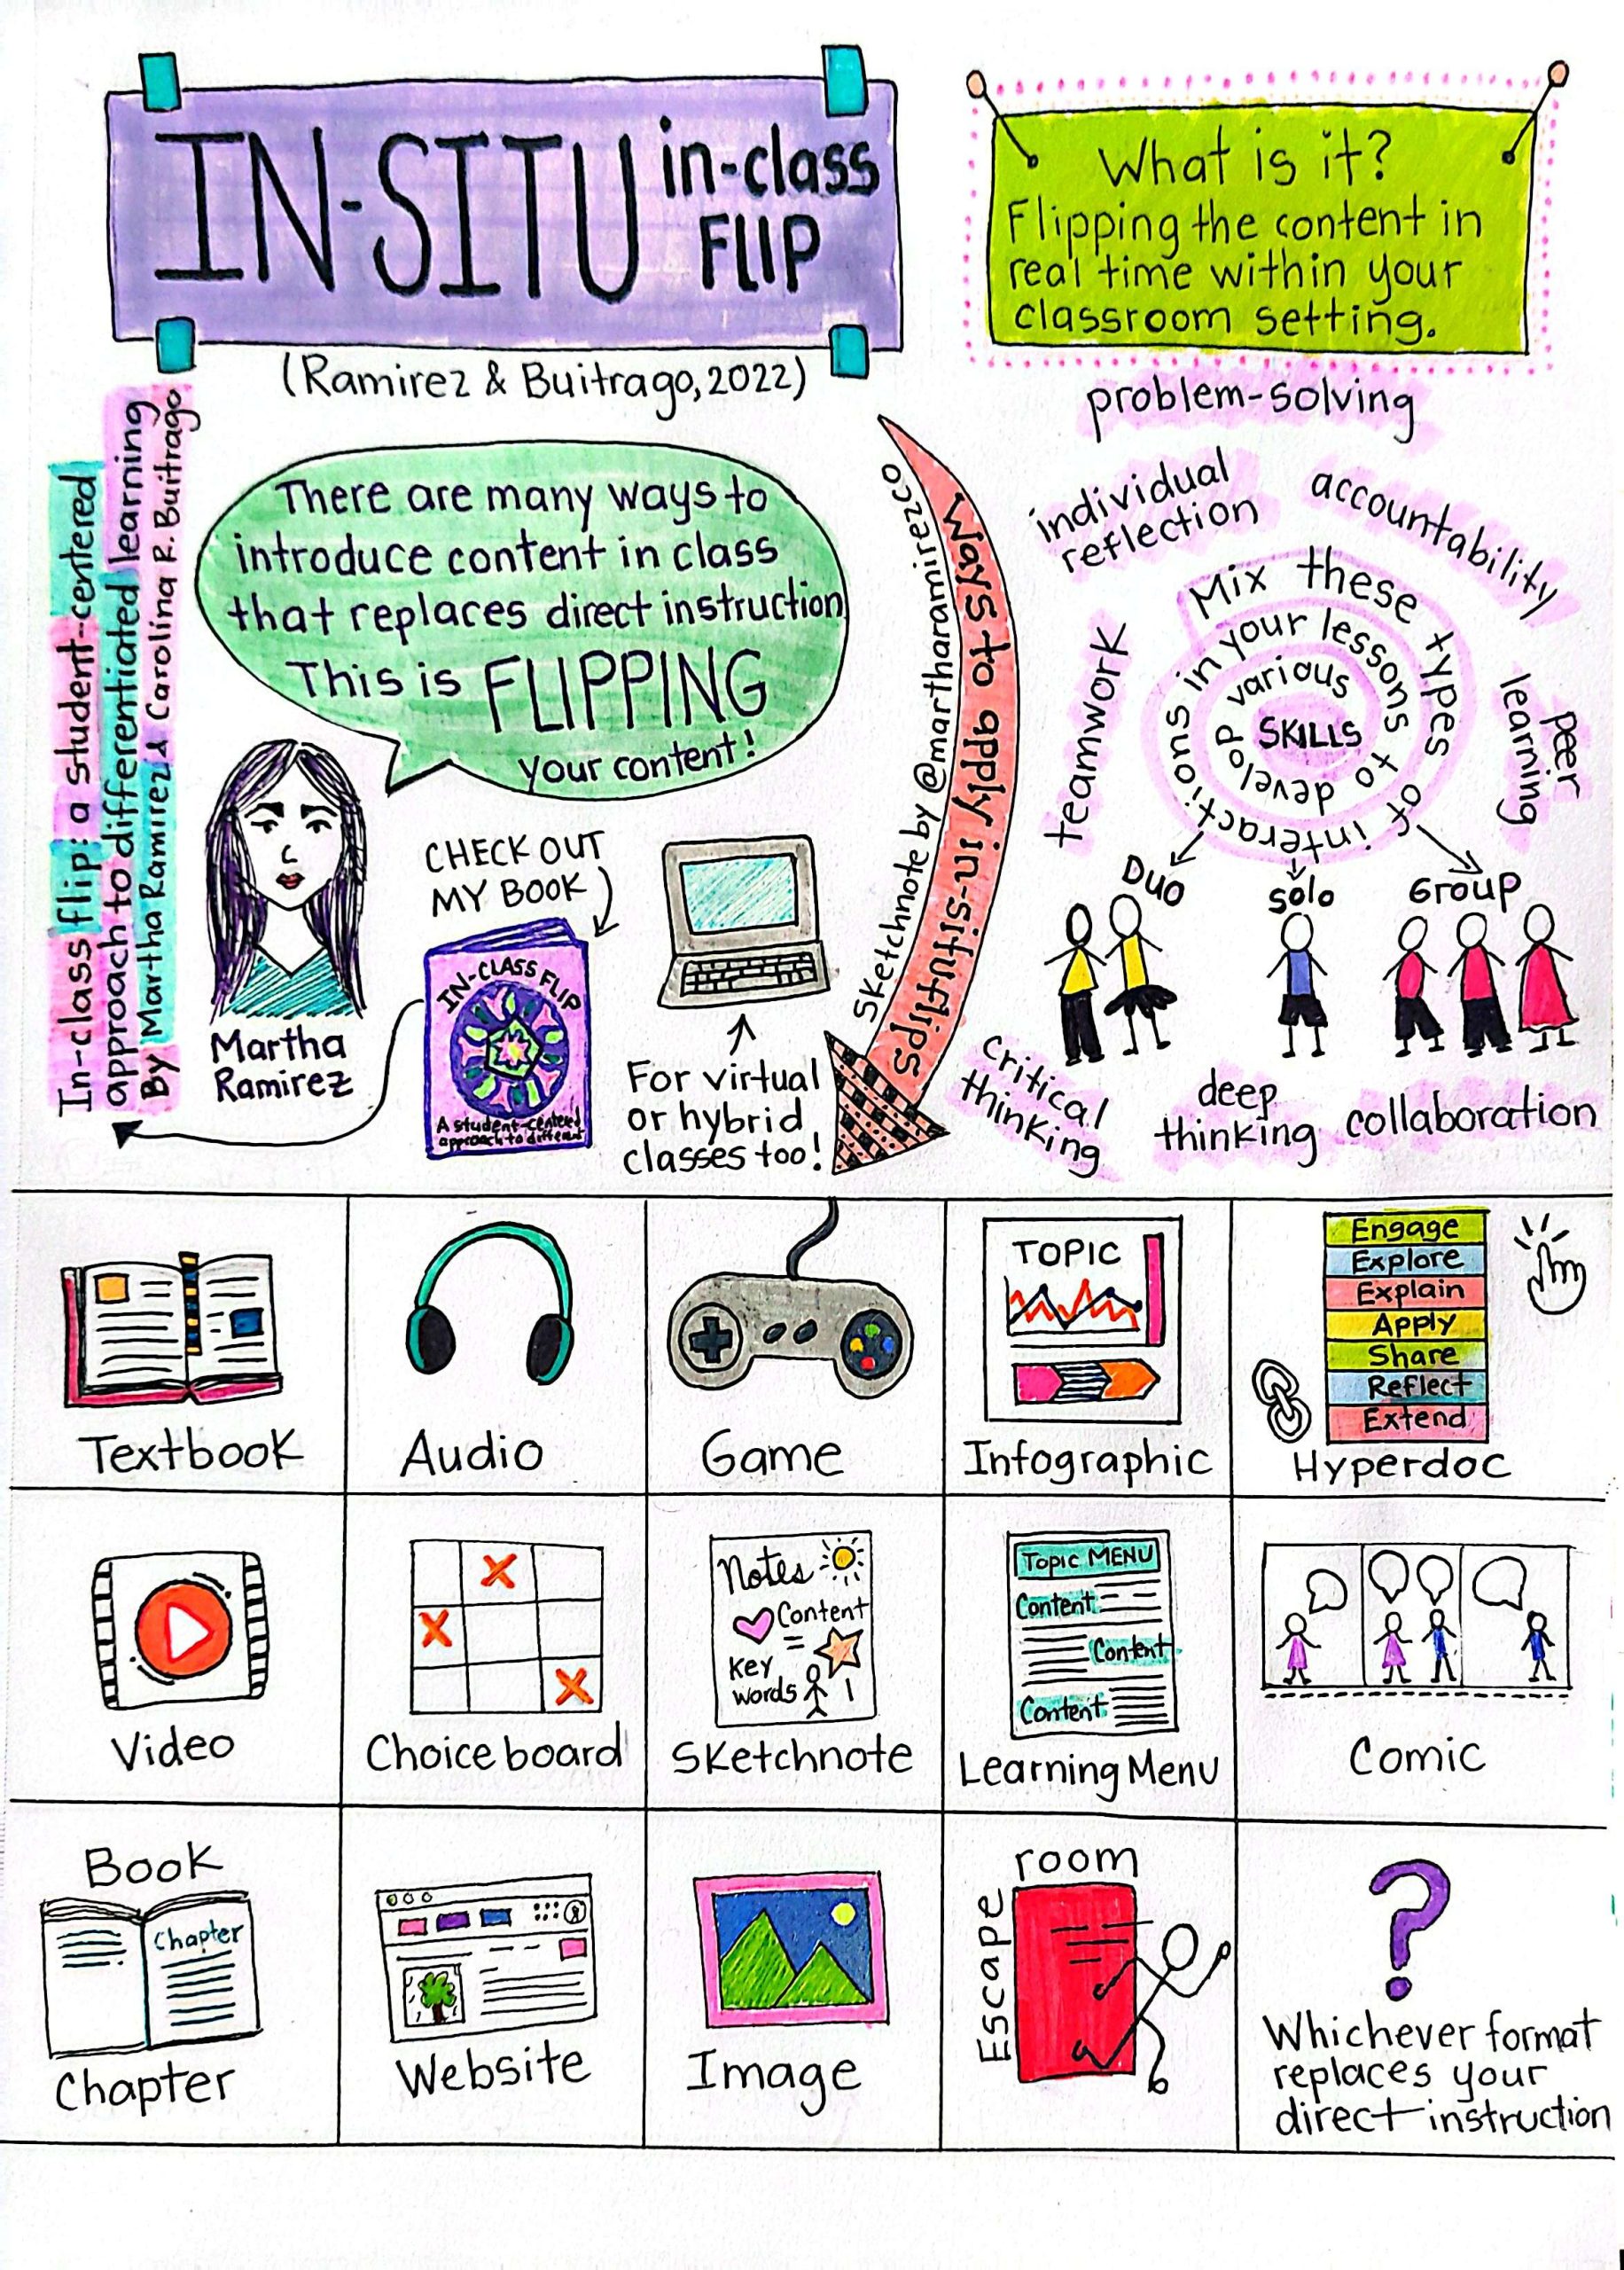 IN-SITU in-class
FLIP
(Ramirez & Buitrago, 2022)
What is it?
Flipping the content in
real time within your
classroom setting.
In-class flip: a student-centered
approach to differentiated learning
By Martha Ramirez & Carolina R. Buitrago
There are many ways to
introduce content in class
that replaces direct instruction
This is FLIPPING
your content!
Martha
Ramirez
CHECK OUT
MY BOOK
IN-CLASS FLIP
A student-centered
approach to different
For virtual
or hybrid
classes too!
Sketchnote by @martharamirezco
Ways to apply in-situ flips
problem-solving
individual
reflection
accountability
teamwork
peer
learning
Mix these types of interactions in your lessons to develop various
SKILLS
Duo
solo
Group
critical
thinking
deep
thinking
collaboration
TOPIC
Engage
Explore
Explain
Apply
Share
Reflect
Extend
Textbook
Audio
Game
Infographic
Hyperdoc
Notes
Content
=
Key
words
Topic MENU
Content
Content
Content
Video
Choice board
Sketchnote
Learning Menu
Comic
Book
Chapter
Chapter
Website
Image
Escape
room
?
Whichever format
replaces your
direct instruction